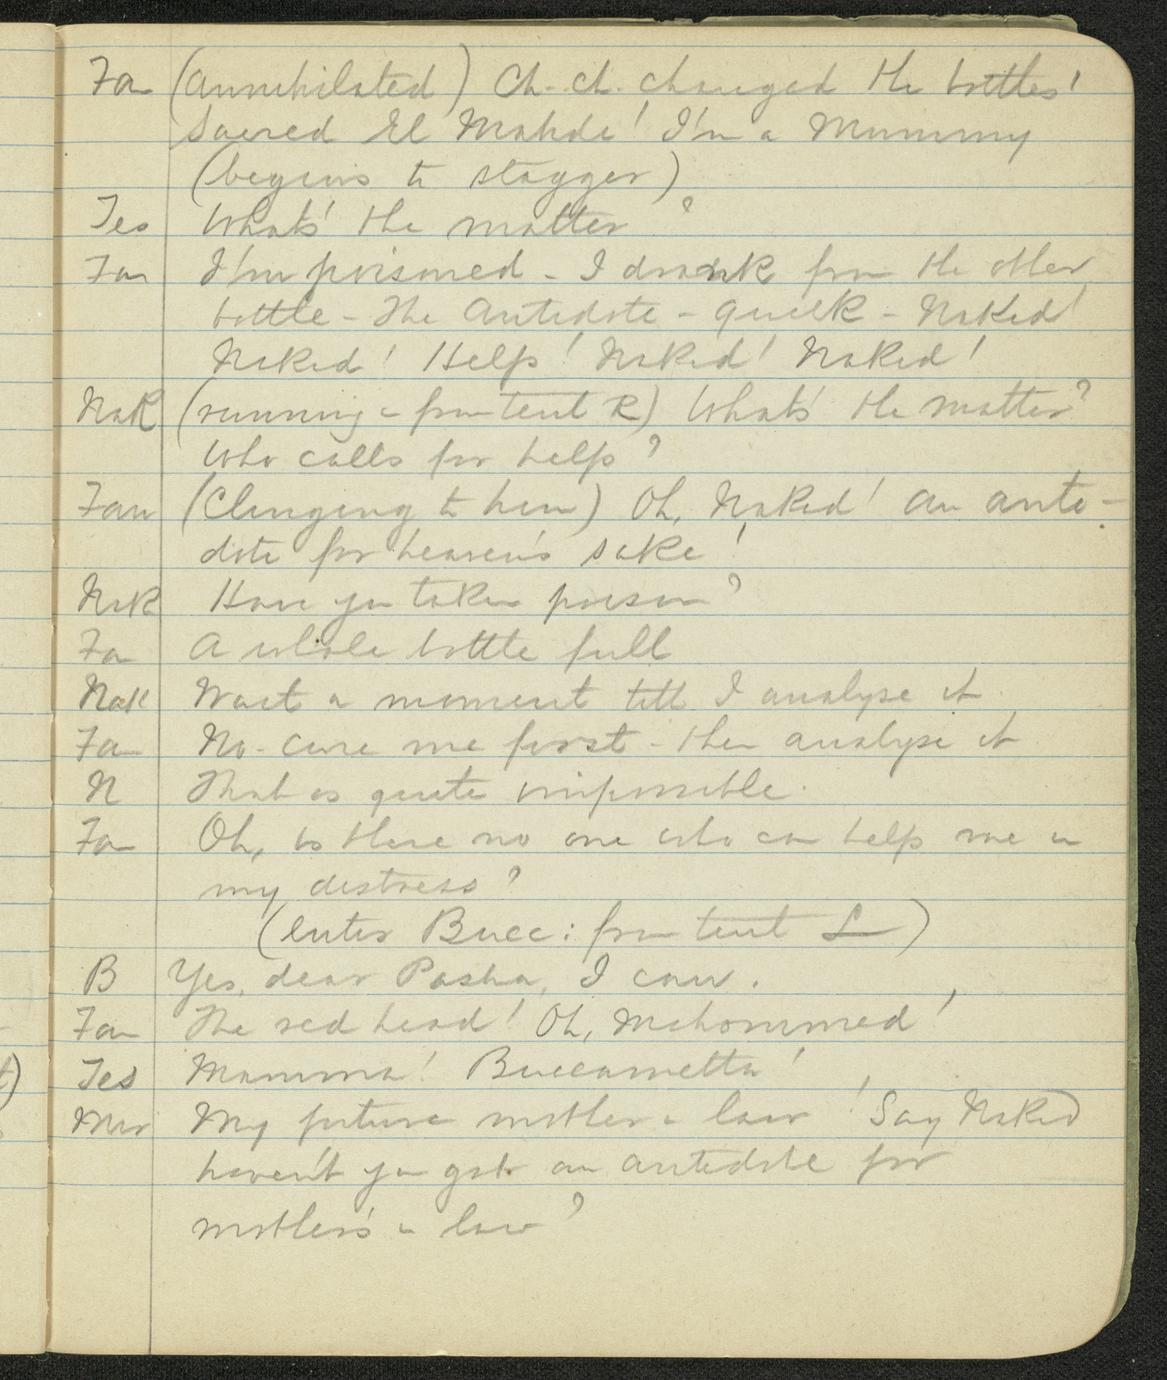 Fan (annihilated) Ch-ch. changed the bottles!
Sacred El Mahde! I'm a Mummy
(begins to stagger)
Tes What's the matter?
Fan I'm poisoned - I drank from the other
bottle - The Antidote - quick - Naked!
Naked! Help! Naked! Naked!
Nak (running in from tent R) What's the matter?
Who calls for help?
Fan (Clinging to him) Oh, Naked! an anti-
dote for heaven's sake!
Nak Have you taken poison?
Fa A whole bottle full
Nak Wait a moment till I analyse it
Fa No - cure me first - then analyse it
N That is quite impossible.
Fa Oh, is there no one who can help me in
my distress?
(enter Bucc: from tent L)
B Yes, dear Pasha, I can.
Fan The red head! Oh, Mahommed!
Tes Mamma! Buccametta!
My future mother in law! Say Naked
haven't you got an antidote for
mothers in law?